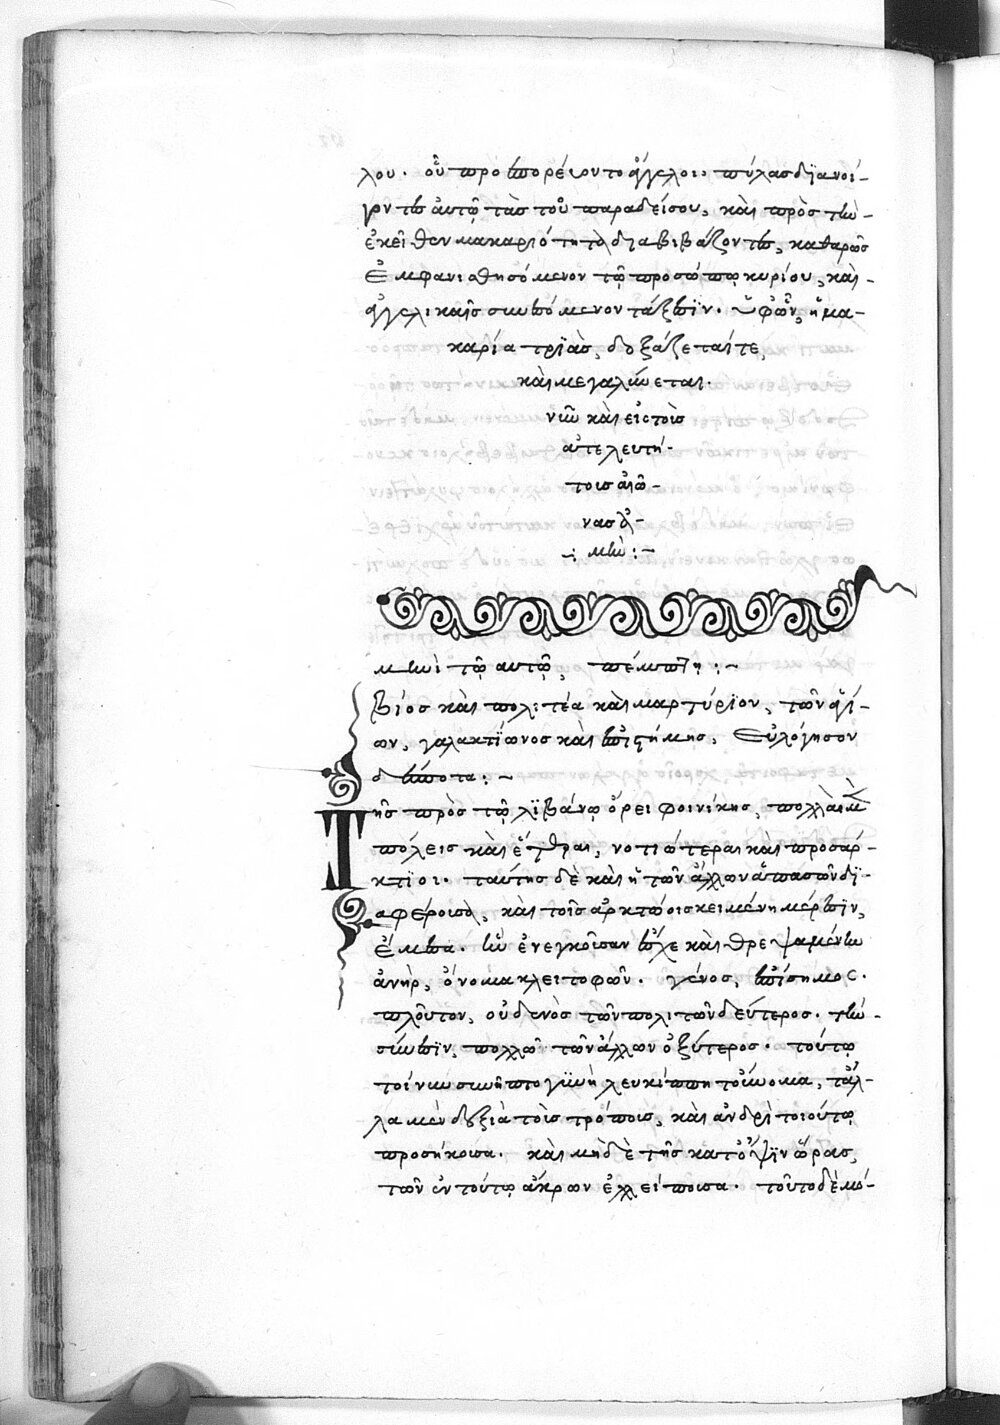 λου. οὗ προεπορεύοντο ἄγγελοι, πύλας διανοί-
γοντες αὐτῶ τὰς τοῦ παραδείσου, καὶ πρὸς τὴν
ἐκεῖθεν μακαριότητα διαβιβάζοντες, καθαρῶς
ἐμφανισθησόμενον τῶ προσώπω κυρίου, καὶ
ἀγγελικαῖς συνεσόμενον τάξεσϊν. ὑφ' ὧν, ἡ μα-
καρία τριὰς, δοξάζεταί τε,
καὶ μεγαλύνεται.
νῦν καὶ εἰς τοὺς
ἀτελευτή-
τους αἰῶ-
νας ἀ-
μήν :~
μηνὶ τῶ αυτῶ, πέμπτη :~
Βίος καὶ πολιτέα καὶ μαρτύριον, τῶν ἁγί-
ων, γαλακτίωνος καὶ ἐπιστήμης. Εὐλόγησον
δέσποτα :~
Τῆς πρὸς τῶ λϊβάνω ὄρει φοινίκης, πολλαὶ μὲν
πόλεις καὶ ἕτεραι, νοτιώτεραι καὶ προσάρ-
κτιοι. ταύτης δὲ καὶ ἡ τῶν ἄλλων ἁπασῶν δϊ-
αφέρουσα, καὶ τοῖς ἀρκτώοις κειμένη μέρεσϊν,
Ἔμεσα. ἣν ἐνεγκοῦσαν ἔσχε καὶ θρεψαμένην
ἀνὴρ, ὄνομα κλειτοφῶν. γένος, ἐπίσημος.
πλοῦτον, οὐδενὸς τῶν πολιτῶν δεύτερος. τὴν
σύνεσϊν, πολλῶν τῶν ἄλλων ὀξύτερος. τούτω
τοίνυν συνῆπτο γϋνὴ λευκίππη τοὔνομα, τἄλ-
λα μὲν δεξιὰ τοὺς τρόπους, καὶ ἀνδρὶ τοιούτω
προσήκουσα. καὶ μηδὲ τῆς κατ' ὄψϊν ὥρας,
τῶν ἐν τούτω ἄκρων ἐλλείπουσα. τοῦτο δὲ μό-